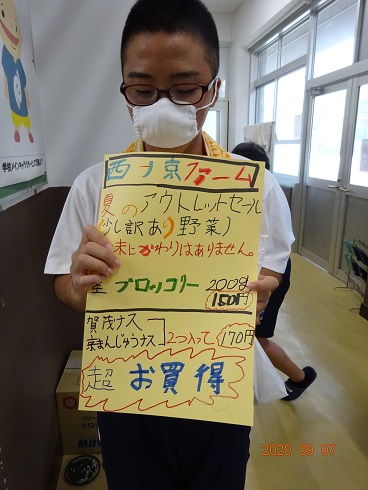 西ノ京ファーム
夏のアウトレットセール
少し訳あり野菜
味にかわりはありません。
茎ブロッコリー 200g
150円
賀茂ナス
京まんじゅうナス
2つ入って 170円
超 お買得
2020 09 07